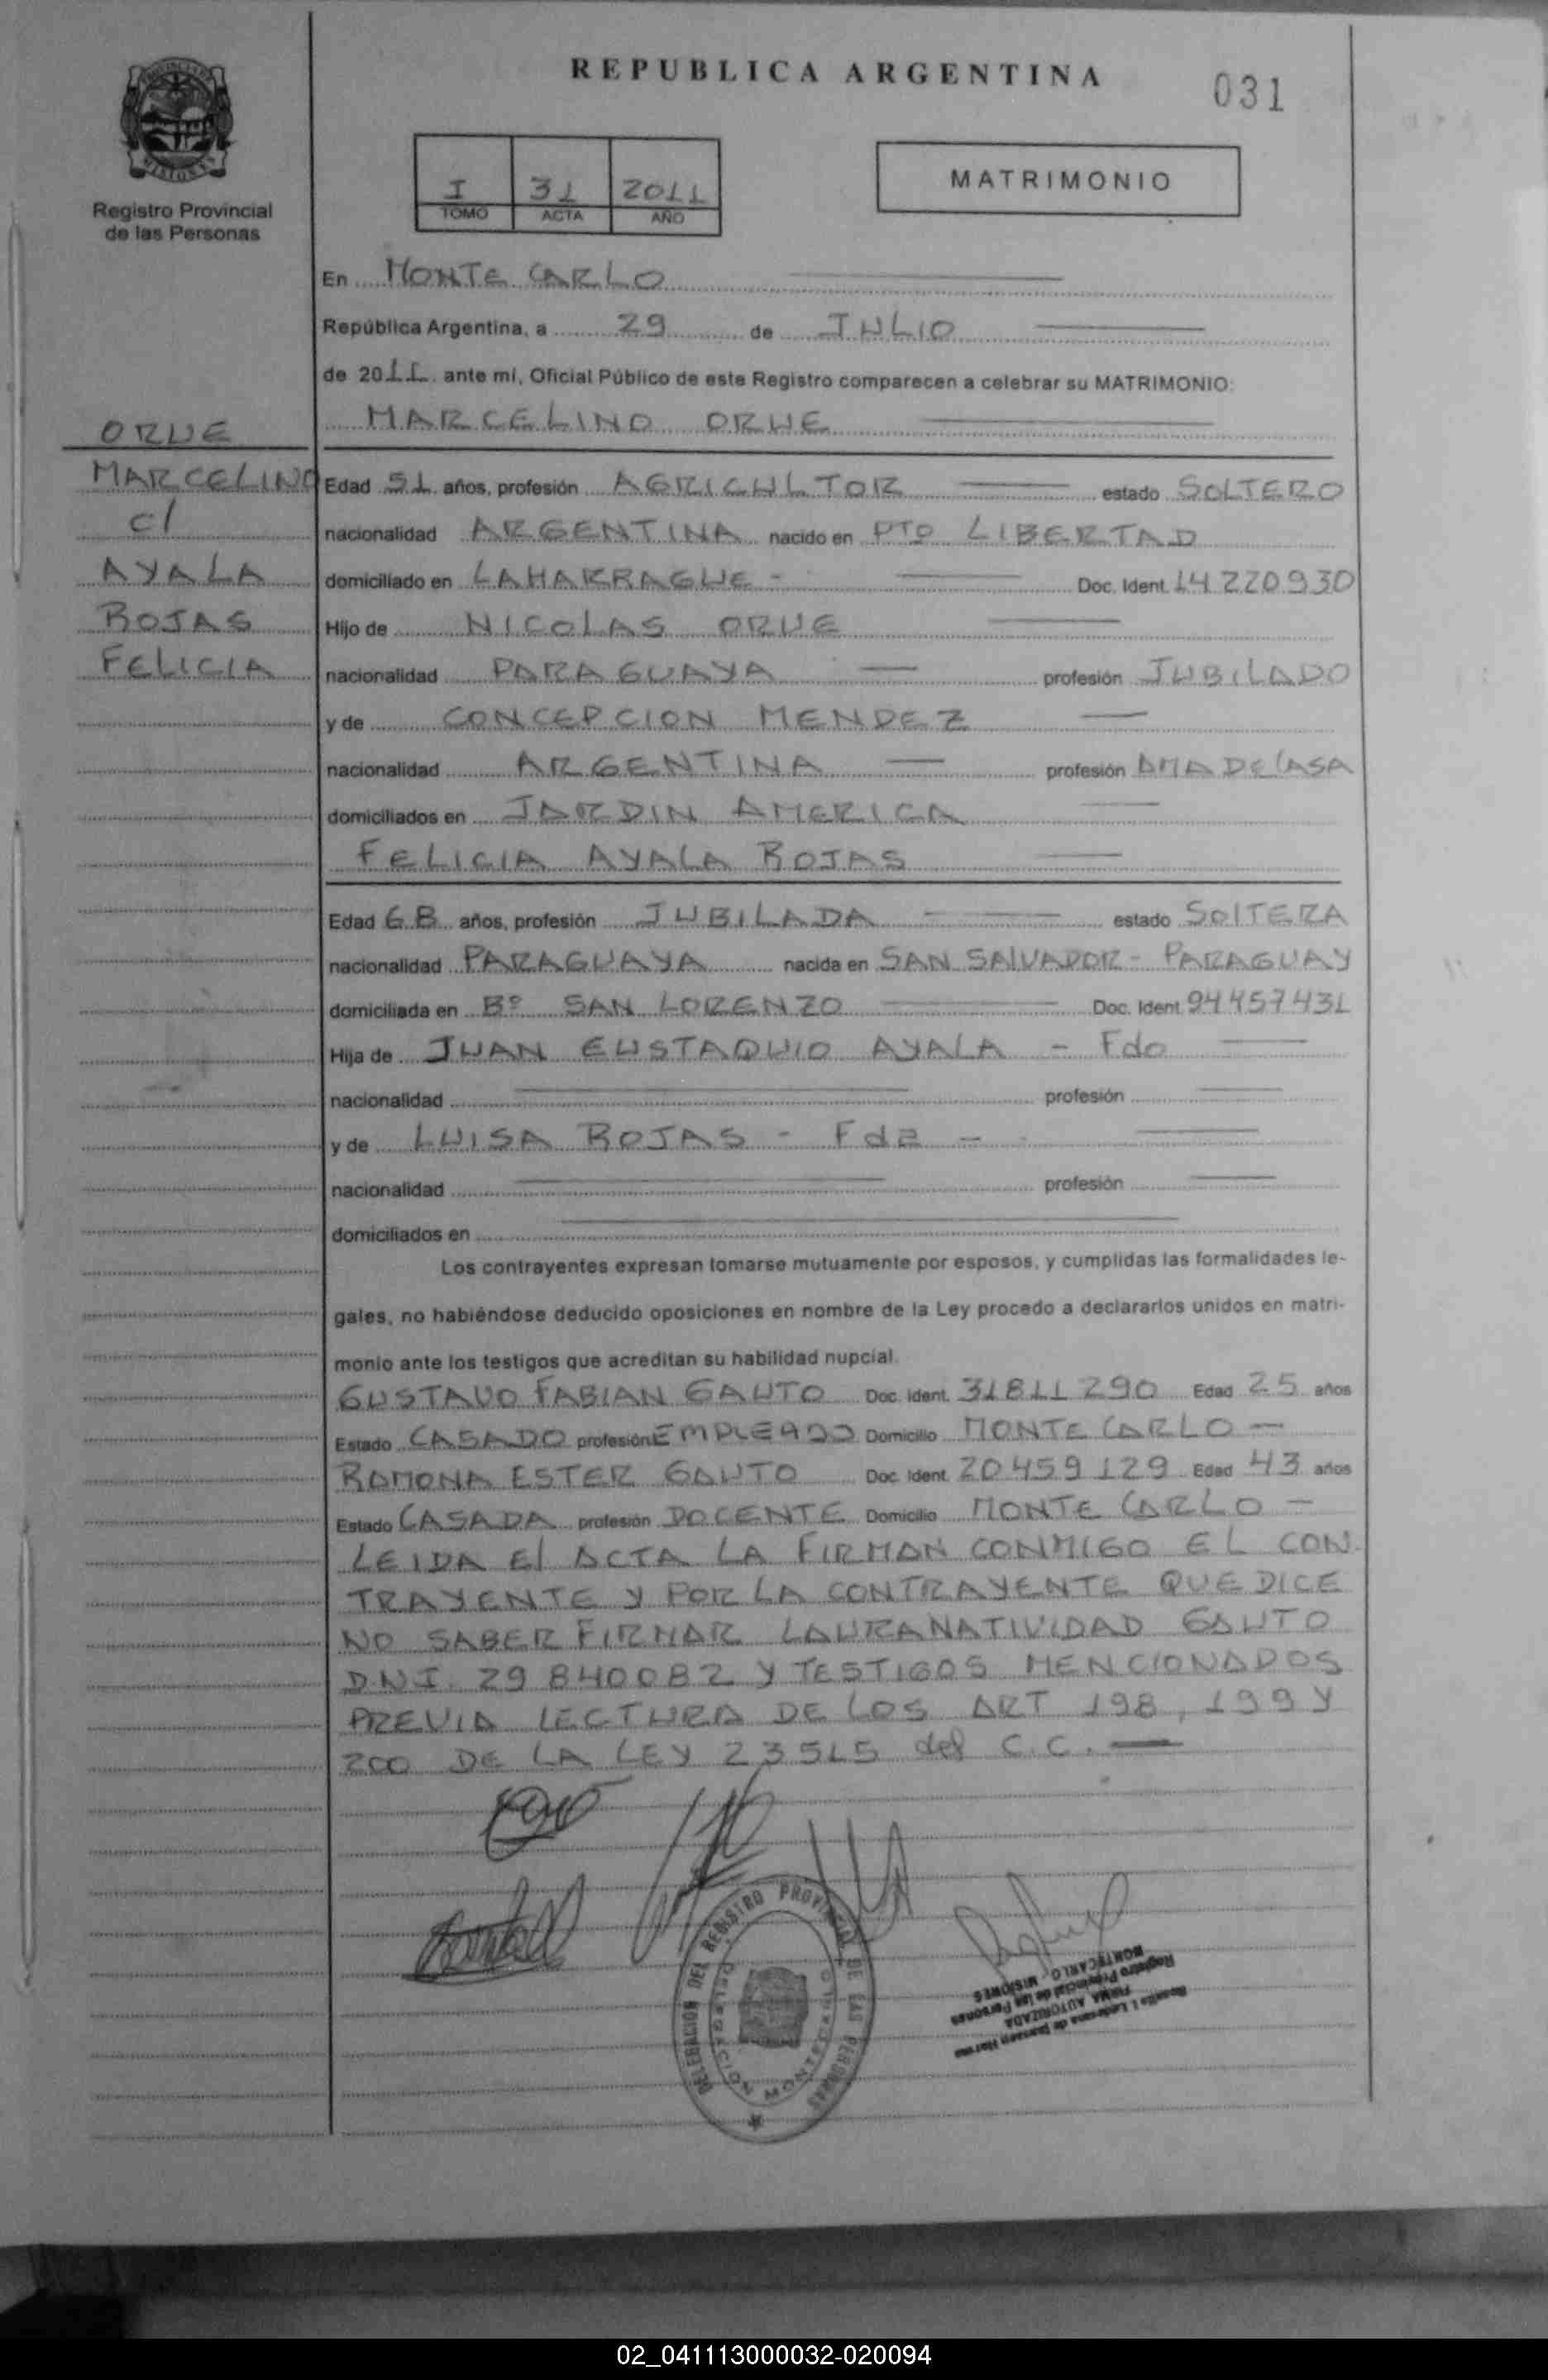 REPUBLICA ARGENTINA
031
Registro Provincial
de las Personas
I 31 2011
TOMO ACTA AÑO
MATRIMONIO
En MONTE CARLO
República Argentina, a 29 de JULIO
de 2011 ante mí, Oficial Público de este Registro comparecen a celebrar su MATRIMONIO:
MARCELINO ORUE
ORUE
MARCELINO
c/
AYALA
ROJAS
FELICIA
Edad 51 años, profesión AGRICULTOR estado SOLTERO
nacionalidad ARGENTINA nacido en PTO LIBERTAD
domiciliado en LAHARRAGUE - Doc. Ident. 14220930
Hijo de NICOLAS ORUE
nacionalidad PARAGUAYA profesión JUBILADO
y de CONCEPCION MENDEZ
nacionalidad ARGENTINA profesión AMA DE CASA
domiciliados en JARDIN AMERICA
FELICIA AYALA ROJAS
Edad 68 años, profesión JUBILADA estado SOLTERA
nacionalidad PARAGUAYA nacida en SAN SALVADOR - PARAGUAY
domiciliada en Bº SAN LORENZO Doc. Ident. 94457431
Hija de JUAN EUSTAQUIO AYALA - Fdo
nacionalidad profesión
y de LUISA ROJAS - Fda -
nacionalidad profesión
domiciliados en
Los contrayentes expresan tomarse mutuamente por esposos, y cumplidas las formalidades le-
gales, no habiéndose deducido oposiciones en nombre de la Ley procedo a declararlos unidos en matri-
monio ante los testigos que acreditan su habilidad nupcial.
GUSTAVO FABIAN GAUTO Doc. Ident. 31811290 Edad 25 años
Estado CASADO profesión EMPLEADO Domicilio MONTE CARLO -
RAMONA ESTER GAUTO Doc. Ident. 20459129 Edad 43 años
Estado CASADA profesión DOCENTE Domicilio MONTE CARLO -
LEIDA El ACTA LA FIRMAN CONMIGO EL CON
TRAYENTE Y POR LA CONTRAYENTE QUE DICE
NO SABER FIRMAR LAURA NATIVIDAD GAUTO
D.N.I. 29840082 Y TESTIGOS MENCIONADOS
PREVIA LECTURA DE LOS ART 198, 199 Y
200 DE LA LEY 23515 del C.C.
DELEGACION DEL REGISTRO PROVINCIAL DE LAS PERSONAS
FIRMA AUTORIZADA
Registro Provincial de las Personas
MONTECARLO - MISIONES
02_041113000032-020094